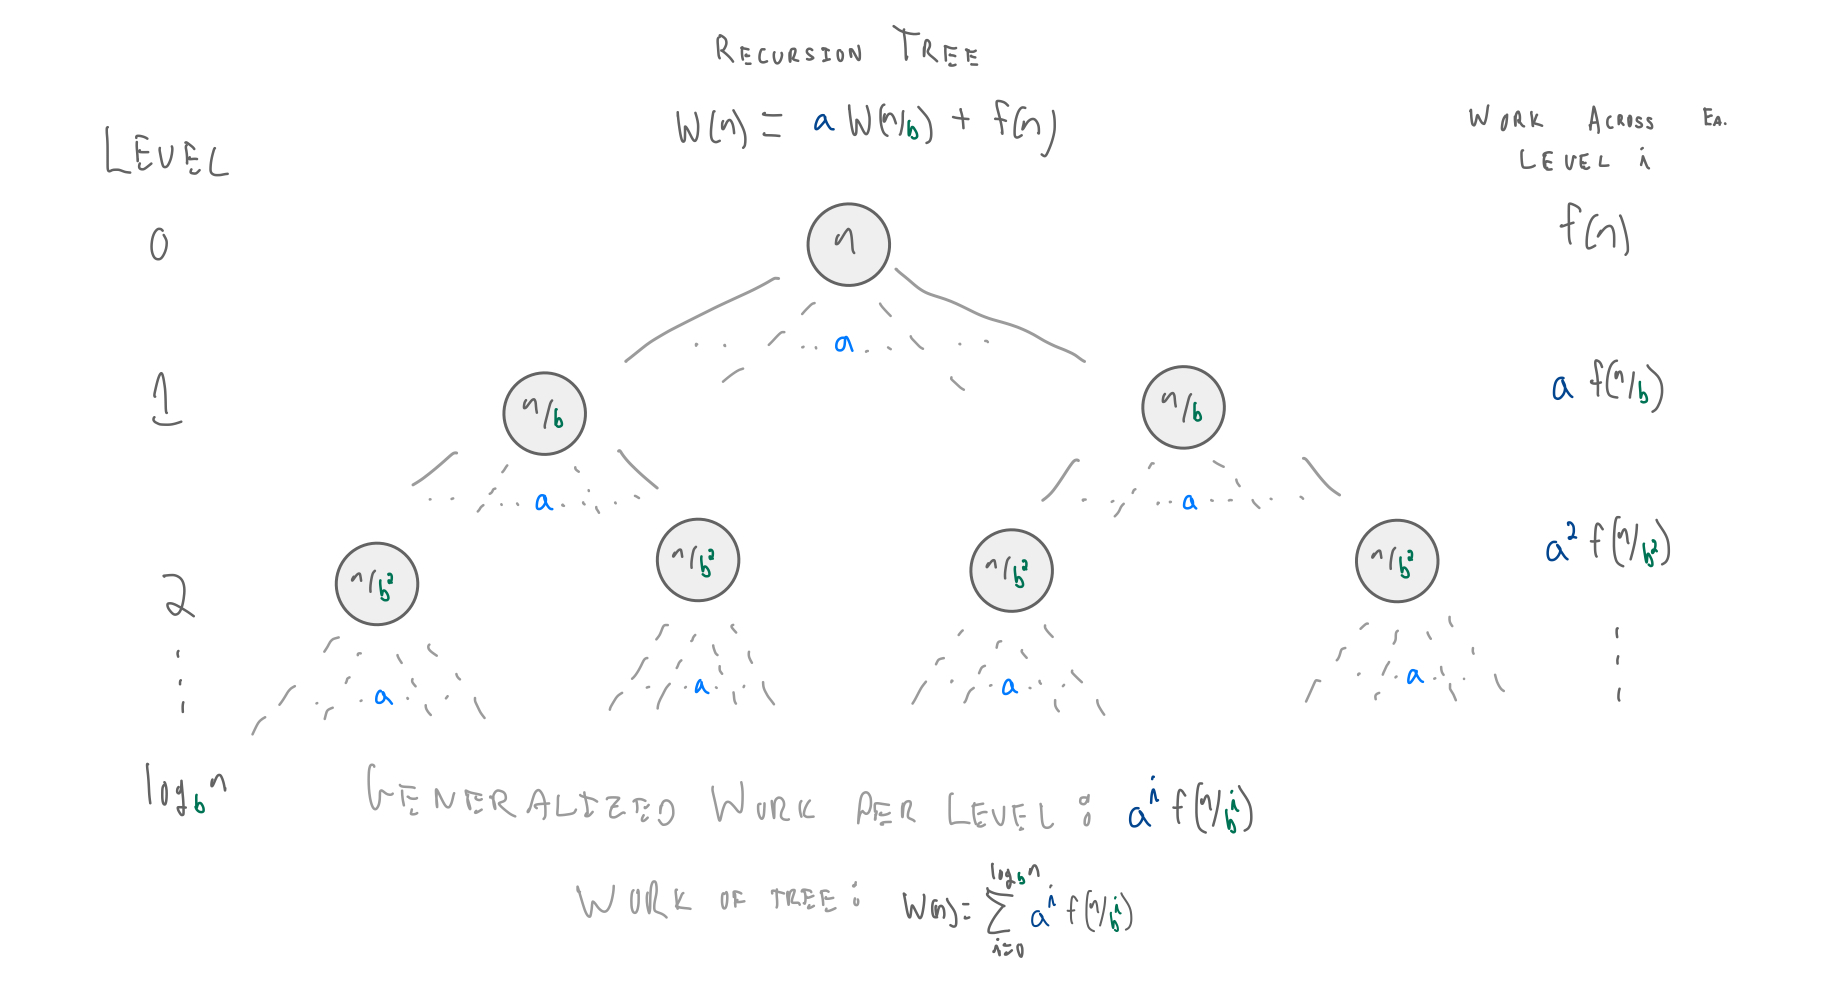 RECURSION TREE
W(n) = a W(n/b) + f(n)
WORK ACROSS EA.
LEVEL i
LEVEL
0
n
f(n)
a
1
n/b
n/b
a f(n/b)
a
a
2
n/b²
n/b²
n/b²
n/b²
a² f(n/b²)
a
a
a
a
log_b n
GENERALIZED WORK PER LEVEL: a^i f(n/b^i)
WORK OF TREE: W(n) = ∑_{i=0}^{log_b n} a^i f(n/b^i)